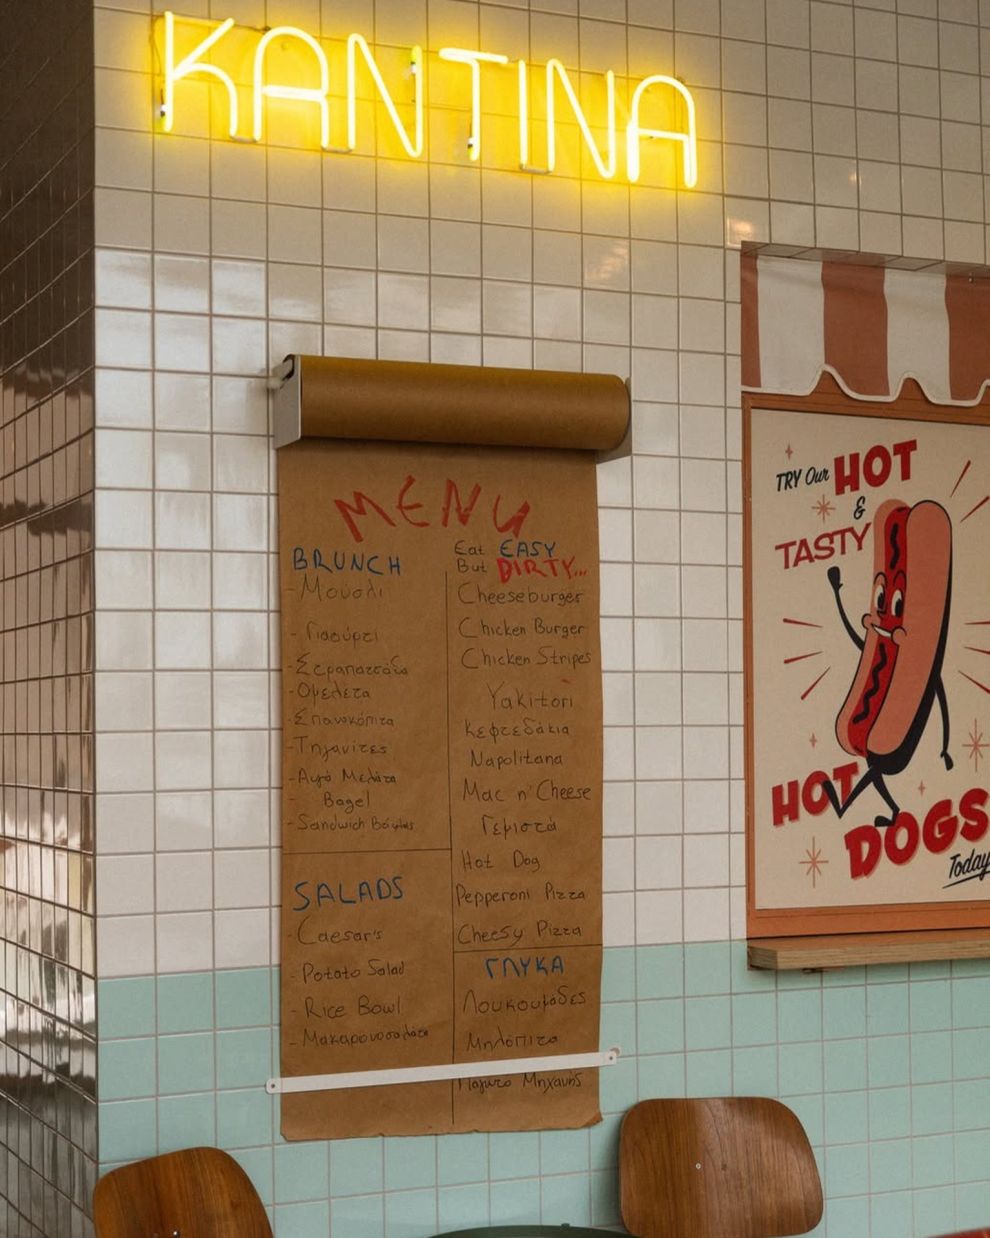 KANTINA
MENU
BRUNCH
- Μουσλι
- Γιαούρτι
- Στραπατσάδα
- Ομελέτα
- Σπανακόπιτα
- Τηγανίτες
- Αυγά Μελάτα
- Bagel
- Sandwich Βάφλας
SALADS
- Caesar's
- Potato Salad
- Rice Bowl
- Μακαρονοσαλάτα
Eat EASY
But DIRTY...
Cheeseburger
Chicken Burger
Chicken Stripes
Yakitori
Κεφτεδάκια
Napolitana
Mac n' Cheese
Γεμιστά
Hot Dog
Pepperoni Pizza
Cheesy Pizza
ΓΛΥΚΑ
Λουκουμάδες
Μηλόπιτα
Παγωτό Μηχανής
TRY Our HOT
&
TASTY
HOT
DOGS
Today